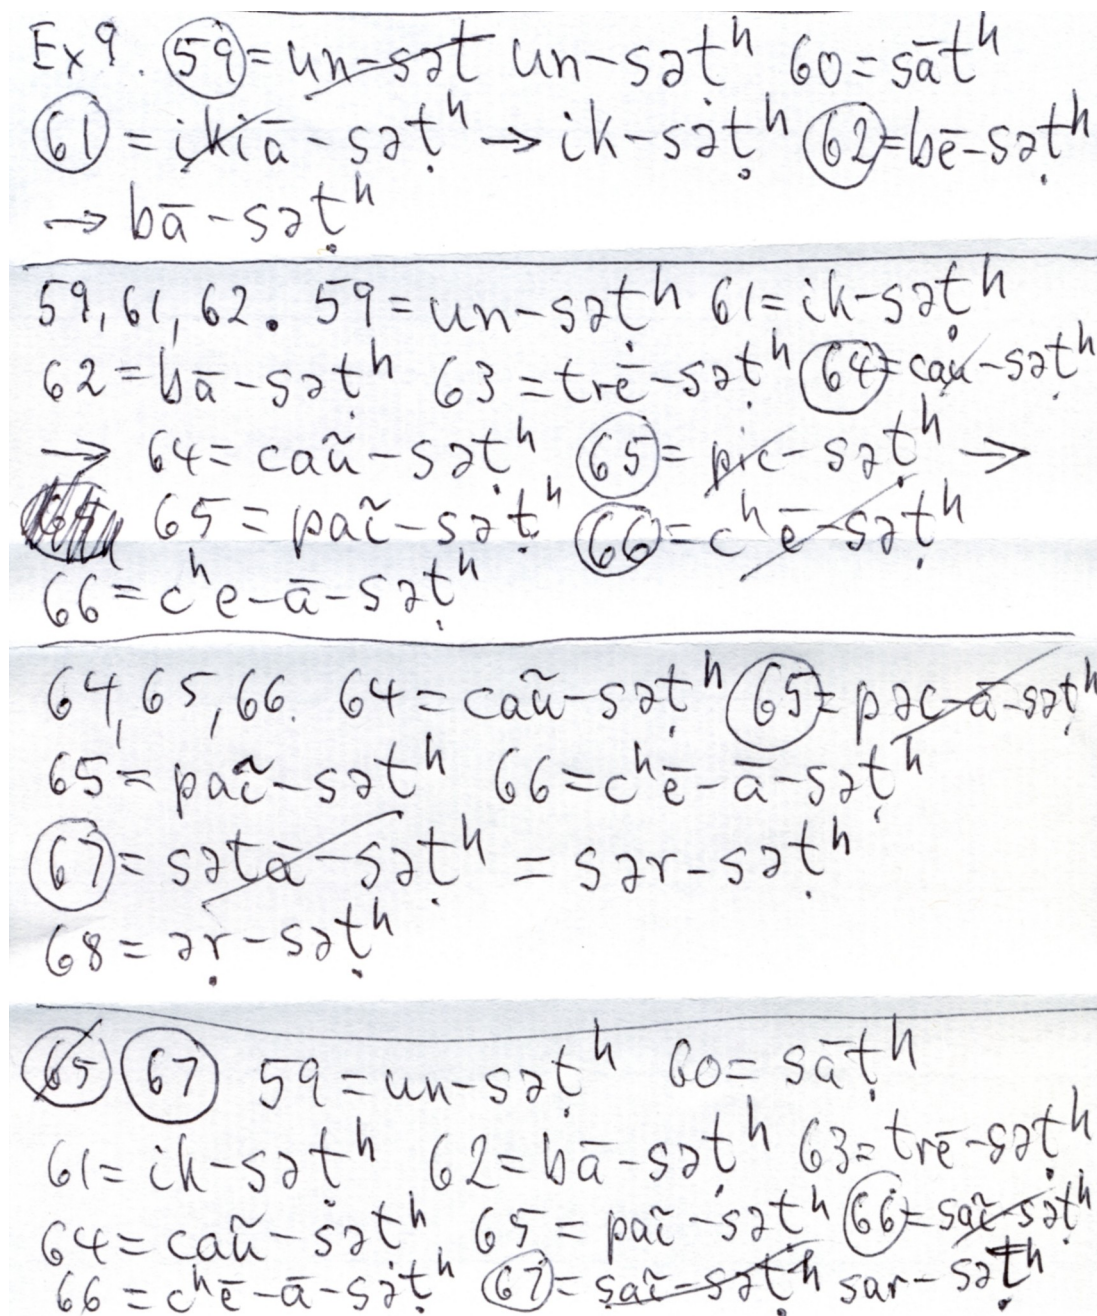 Ex 9. 59 = un-səṭ un-səṭʰ 60 = sāṭʰ
61 = ikiā-səṭʰ → ik-səṭʰ 62 = bē-səṭʰ
→ bā-səṭʰ
59, 61, 62. 59 = un-səṭʰ 61 = ik-səṭʰ
62 = bā-səṭʰ 63 = trē-səṭʰ 64 = caü-səṭʰ
→ 64 = caũ-səṭʰ 65 = pic-səṭʰ →
65 = paĩ-səṭʰ 66 = cʰē-səṭʰ
66 = cʰe-ā-səṭʰ
64, 65, 66. 64 = caũ-səṭʰ 65 = pəc-ā-səṭʰ
65 = paĩ-səṭʰ 66 = cʰē-ā-səṭʰ
67 = sətā-səṭʰ = sər-səṭʰ
68 = əṛ-səṭʰ
65 67 59 = un-səṭʰ 60 = sāṭʰ
61 = ik-səṭʰ 62 = bā-səṭʰ 63 = trē-səṭʰ
64 = caũ-səṭʰ 65 = paĩ-səṭʰ 66 = saĩ-səṭʰ
66 = cʰē-ā-səṭʰ 67 = saĩ-səṭʰ sar-səṭʰ